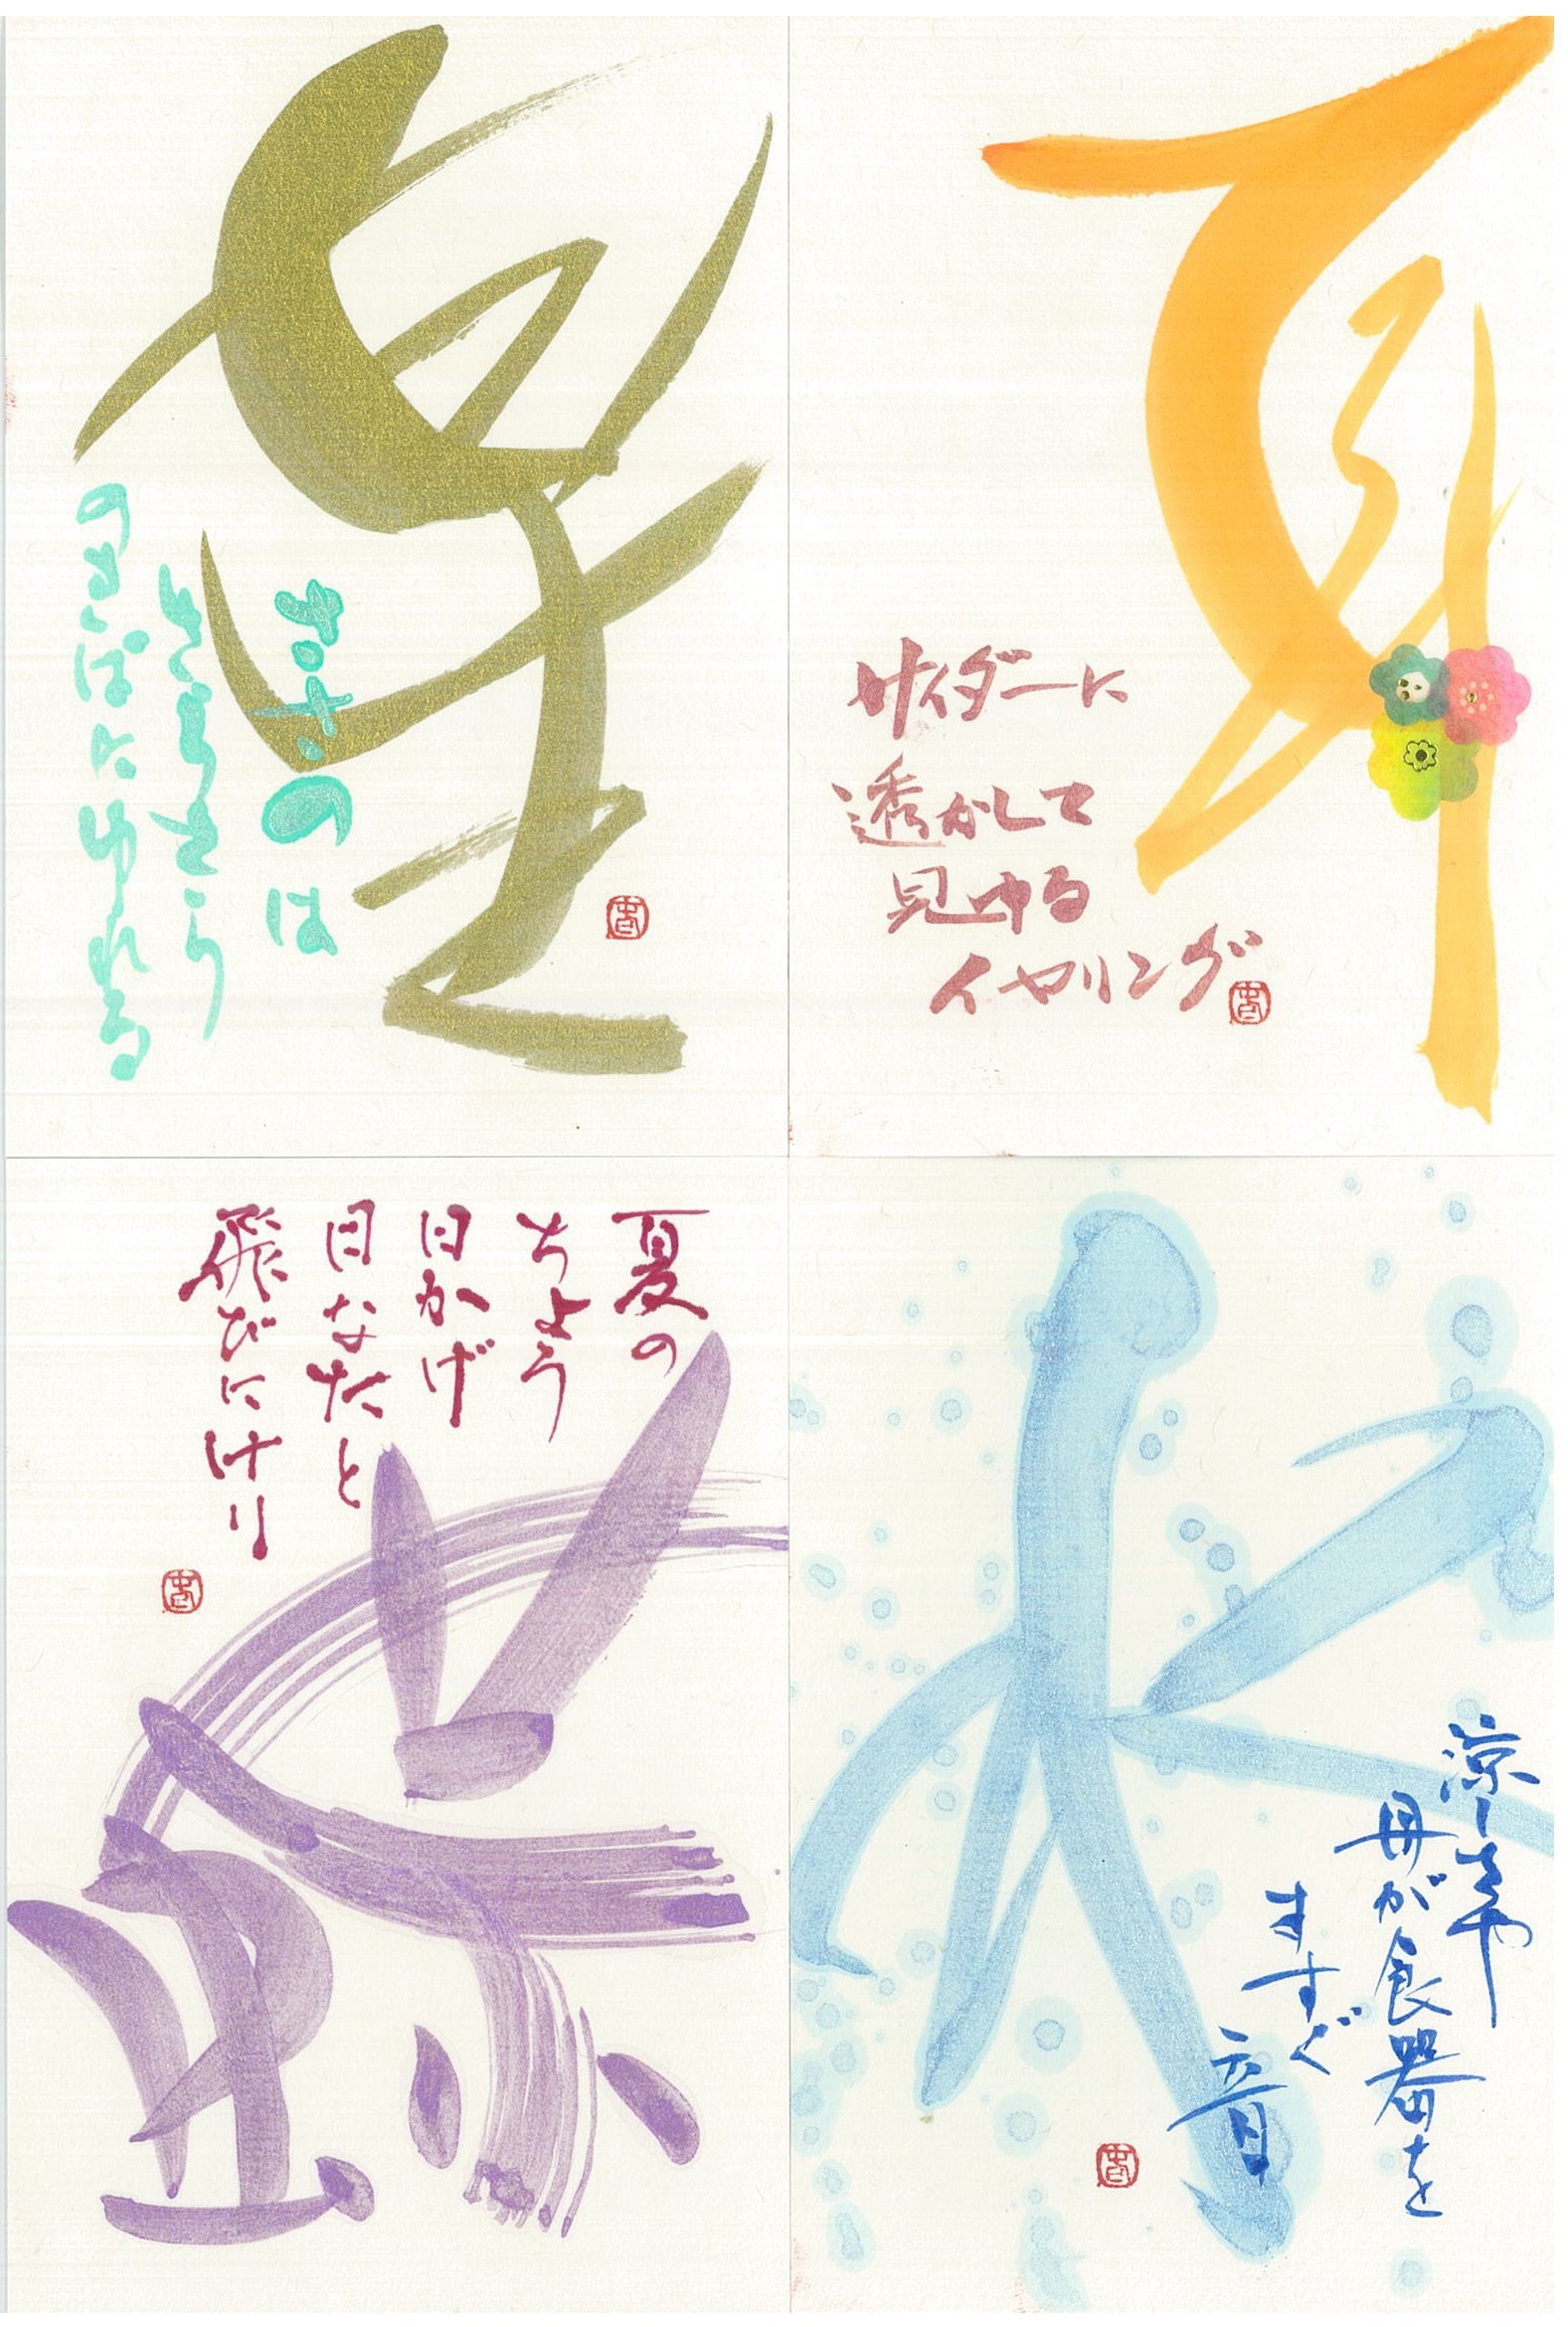 星
ささのは
さらさら
のきばにゆれる
耳
サイダーに
透かして
見ゆる
イヤリング
夏の
ちょう
日かげ
日なたと
飛びにけり
水
涼しさや
母が食器を
すすぐ
音